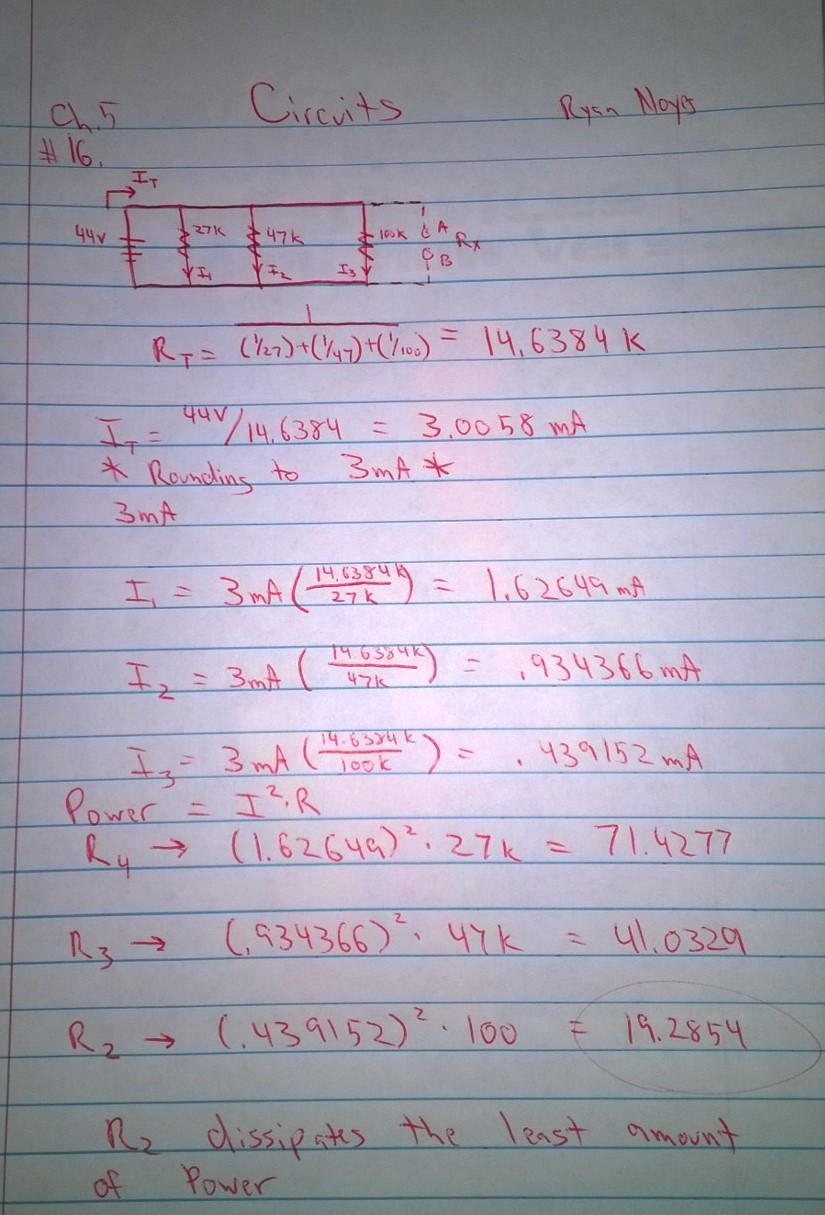 Ch.5 Circuits Ryan Noyes
# 16.
I_T
44V 27K 47K 100K A R_x
I_1 I_2 I_3 B
R_T = 1 / ((1/27)+(1/47)+(1/100)) = 14.6384 K
I_T = 44V/14.6384 = 3.0058 mA
* Rounding to 3mA *
3mA
I_1 = 3mA (14.6384K / 27K) = 1.62649 mA
I_2 = 3mA (14.6384K / 47K) = .934366 mA
I_3 = 3mA (14.6384K / 100K) = .439152 mA
Power = I²·R
R_4 → (1.62649)² · 27K = 71.4277
R_3 → (.934366)² · 47K = 41.0329
R_2 → (.439152)² · 100 = 19.2854
R_2 dissipates the least amount
of Power